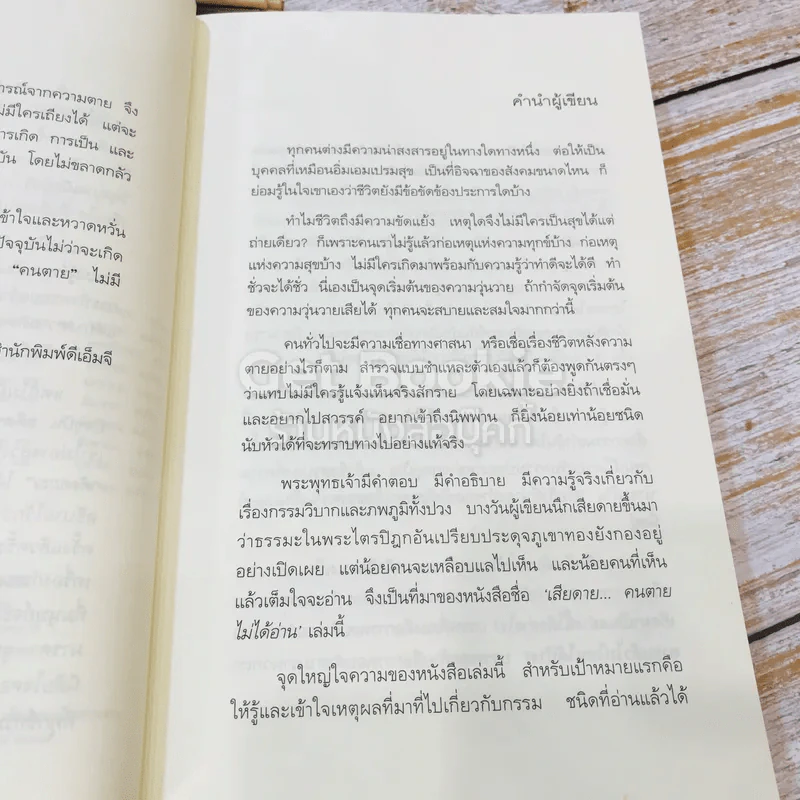 ารณ์จากความตาย จึง
ม่มีใครเถียงได้ แต่จะ
ารเกิด การเป็น และ
บัน โดยไม่ขลาดกลัว
ข้าใจและหวาดหวั่น
ปัจจุบันไม่ว่าจะเกิด
“คนตาย” ไม่มี
ำนักพิมพ์ดีเอ็มจี
คำนำผู้เขียน
ทุกคนต่างมีความน่าสงสารอยู่ในทางใดทางหนึ่ง ต่อให้เป็น
บุคคลที่เหมือนอิ่มเอมเปรมสุข เป็นที่อิจฉาของสังคมขนาดไหน ก็
ย่อมรู้ในใจเขาเองว่าชีวิตยังมีข้อขัดข้องประการใดบ้าง
ทำไมชีวิตถึงมีความขัดแย้ง เหตุใดจึงไม่มีใครเป็นสุขได้แต่
ถ่ายเดียว? ก็เพราะคนเราไม่รู้แล้วก่อเหตุแห่งความทุกข์บ้าง ก่อเหตุ
แห่งความสุขบ้าง ไม่มีใครเกิดมาพร้อมกับความรู้ว่าทำดีจะได้ดี ทำ
ชั่วจะได้ชั่ว นี่เองเป็นจุดเริ่มต้นของความวุ่นวาย ถ้ากำจัดจุดเริ่มต้น
ของความวุ่นวายเสียได้ ทุกคนจะสบายและสมใจมากกว่านี้
คนทั่วไปจะมีความเชื่อทางศาสนา หรือเชื่อเรื่องชีวิตหลังความ
ตายอย่างไรก็ตาม สำรวจแบบชำแหละตัวเองแล้วก็ต้องพูดกันตรงๆ
ว่าแทบไม่มีใครรู้แจ้งเห็นจริงสักราย โดยเฉพาะอย่างยิ่งถ้าเชื่อมั่น
และอยากไปสวรรค์ อยากเข้าถึงนิพพาน ก็ยิ่งน้อยเท่าน้อยชนิด
นับหัวได้ที่จะทราบทางไปอย่างแท้จริง
Get Bookie
ร้านหนังสือบุ๊คกี้
พระพุทธเจ้ามีคำตอบ มีคำอธิบาย มีความรู้จริงเกี่ยวกับ
เรื่องกรรมวิบากและภพภูมิทั้งปวง บางวันผู้เขียนนึกเสียดายขึ้นมา
ว่าธรรมะในพระไตรปิฎกอันเปรียบประดุจภูเขาทองยังกองอยู่
อย่างเปิดเผย แต่น้อยคนจะเหลือบแลไปเห็น และน้อยคนที่เห็น
แล้วเต็มใจจะอ่าน จึงเป็นที่มาของหนังสือชื่อ ‘เสียดาย... คนตาย
ไม่ได้อ่าน’ เล่มนี้
จุดใหญ่ใจความของหนังสือเล่มนี้ สำหรับเป้าหมายแรกคือ
ให้รู้และเข้าใจเหตุผลที่มาที่ไปเกี่ยวกับกรรม ชนิดที่อ่านแล้วได้